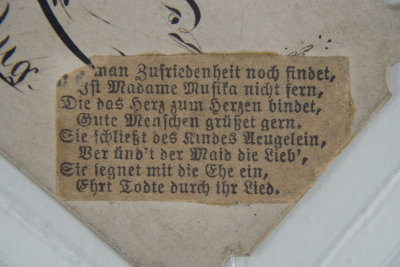 ug.
man Zufriedenheit noch findet,
Ist Madame Musika nicht fern,
Die das Herz zum Herzen bindet,
Gute Menschen grüßet gern.
Sie schließt des Kindes Aeugelein,
Ver ünd't der Maid die Lieb',
Sie segnet mit die Ehe ein,
Ehrt Todte durch ihr Lied.